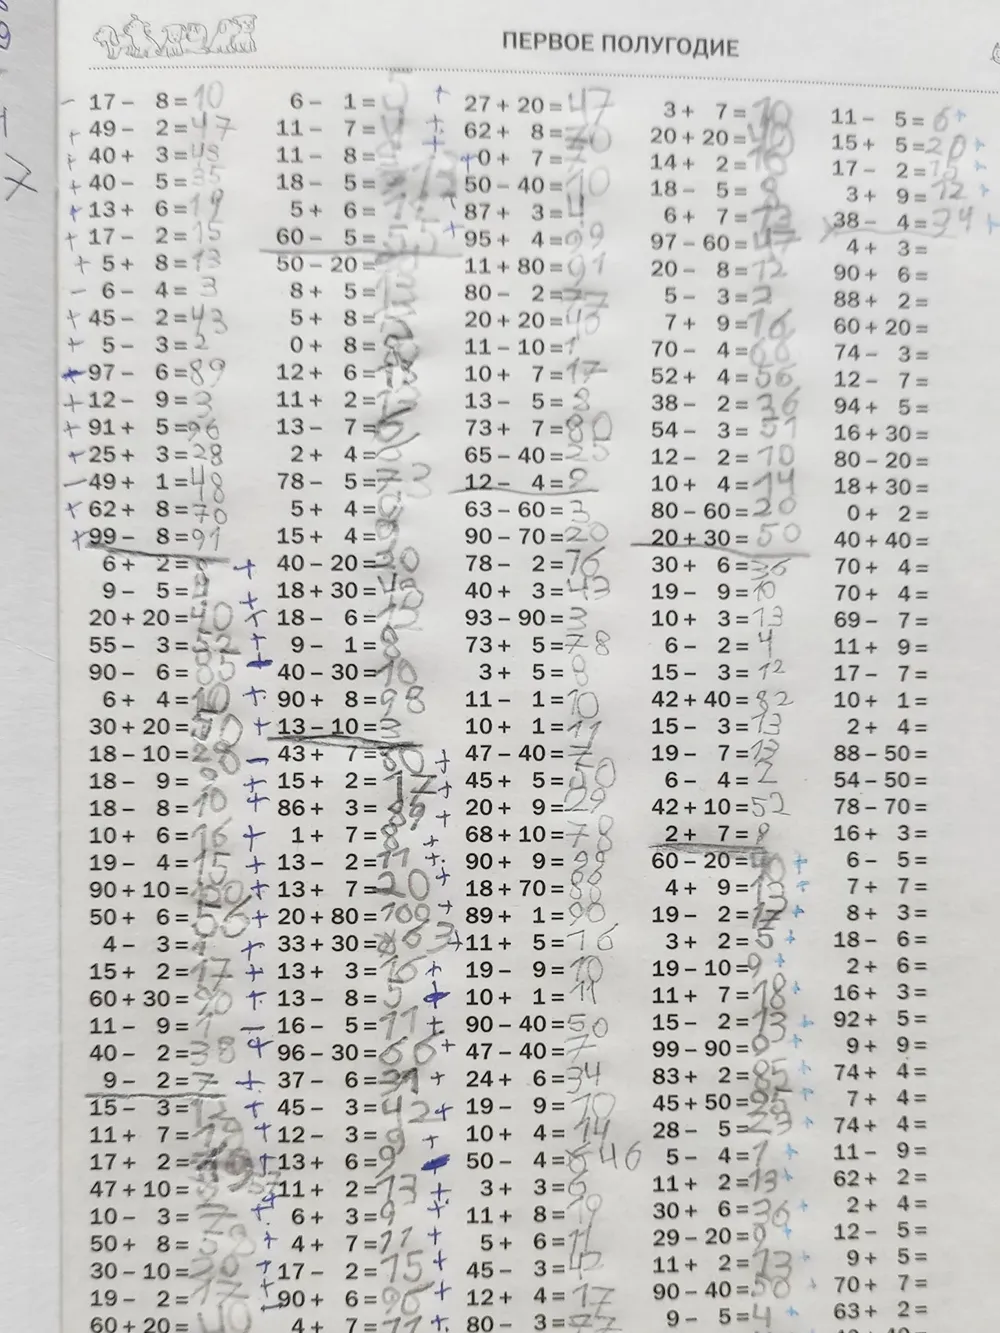 ПЕРВОЕ ПОЛУГОДИЕ
17 - 8 = 10
49 - 2 = 47
40 + 3 = 43
40 - 5 = 35
13 + 6 = 19
17 - 2 = 15
5 + 8 = 13
6 - 4 = 3
45 - 2 = 43
5 - 3 = 2
97 - 6 = 89
12 - 9 = 3
91 + 5 = 96
25 + 3 = 28
49 + 1 = 48
62 + 8 = 70
99 - 8 = 91
6 + 2 =
9 - 5 = 4
20 + 20 = 40
55 - 3 = 52
90 - 6 = 85
6 + 4 = 10
30 + 20 =
18 - 10 =
18 - 9 =
18 - 8 = 10
10 + 6 = 16
19 - 4 = 15
90 + 10 = 100
50 + 6 = 56
4 - 3 = 1
15 + 2 = 17
60 + 30 = 90
11 - 9 = 1
40 - 2 = 38
9 - 2 = 7
15 - 3 = 12
11 + 7 =
17 + 2 =
47 + 10 = 57
10 - 3 = 7
50 + 8 = 58
30 - 10 = 20
19 - 2 = 17
60 + 20 =
6 - 1 = 5
11 - 7 =
11 - 8 =
18 - 5 =
5 + 6 =
60 - 5 = 55
50 - 20 =
8 + 5 =
5 + 8 =
0 + 8 =
12 + 6 =
11 + 2 =
13 - 7 = 6
2 + 4 = 6
78 - 5 = 73
5 + 4 =
15 + 4 =
40 - 20 = 20
18 + 30 = 48
18 - 6 =
9 - 1 = 8
40 - 30 = 10
90 + 8 = 98
13 - 10 = 3
43 + 7 = 50
15 + 2 = 17
86 + 3 = 89
1 + 7 = 8
13 - 2 = 11
13 + 7 = 20
20 + 80 = 100
33 + 30 = 63
13 + 3 = 16
13 - 8 = 5
16 - 5 = 11
96 - 30 = 66
37 - 6 = 31
45 - 3 = 42
12 - 3 = 9
13 + 6 = 9
11 + 2 = 13
6 + 3 = 9
4 + 7 = 11
17 - 2 = 15
90 + 6 = 96
4 + 7 = 11
27 + 20 = 47
62 + 8 = 70
0 + 7 = 7
50 - 40 = 10
87 + 3 =
95 + 4 = 99
11 + 80 = 91
80 - 2 =
20 + 20 = 40
11 - 10 = 1
10 + 7 = 17
13 - 5 = 8
73 + 7 = 80
65 - 40 = 25
12 - 4 =
63 - 60 = 3
90 - 70 = 20
78 - 2 = 76
40 + 3 = 43
93 - 90 = 3
73 + 5 = 78
3 + 5 = 8
11 - 1 = 10
10 + 1 = 11
47 - 40 = 7
45 + 5 = 50
20 + 9 = 29
68 + 10 = 78
90 + 9 = 99
18 + 70 = 88
89 + 1 = 90
11 + 5 = 16
19 - 9 = 10
10 + 1 = 11
90 - 40 = 50
47 - 40 = 7
24 + 6 = 34
19 - 9 = 10
10 + 4 = 14
50 - 4 = 46
3 + 3 = 6
11 + 8 = 19
5 + 6 = 11
45 - 3 = 42
12 + 4 = 17
80 - 3 = 77
3 + 7 = 10
20 + 20 = 40
14 + 2 = 16
18 - 5 =
6 + 7 = 13
97 - 60 =
20 - 8 = 12
5 - 3 = 2
7 + 9 = 16
70 - 4 = 66
52 + 4 = 56
38 - 2 = 36
54 - 3 = 51
12 - 2 = 10
10 + 4 = 14
80 - 60 = 20
20 + 30 = 50
30 + 6 = 36
19 - 9 = 10
10 + 3 = 13
6 - 2 = 4
15 - 3 = 12
42 + 40 = 82
15 - 3 = 13
19 - 7 = 12
6 - 4 = 2
42 + 10 = 52
2 + 7 = 8
60 - 20 = 40
4 + 9 = 13
19 - 2 = 17
3 + 2 = 5
19 - 10 = 9
11 + 7 = 18
15 - 2 = 13
99 - 90 = 9
83 + 2 = 85
45 + 50 = 95
28 - 5 = 23
5 - 4 = 1
11 + 2 = 13
30 + 6 = 36
29 - 20 = 9
11 + 2 = 13
90 - 40 = 50
9 - 5 = 4
11 - 5 = 6
15 + 5 = 20
17 - 2 = 15
3 + 9 = 12
38 - 4 = 34
4 + 3 =
90 + 6 =
88 + 2 =
60 + 20 =
74 - 3 =
12 - 7 =
94 + 5 =
16 + 30 =
80 - 20 =
18 + 30 =
0 + 2 =
40 + 40 =
70 + 4 =
70 + 4 =
69 - 7 =
11 + 9 =
17 - 7 =
10 + 1 =
2 + 4 =
88 - 50 =
54 - 50 =
78 - 70 =
16 + 3 =
6 - 5 =
7 + 7 =
8 + 3 =
18 - 6 =
2 + 6 =
16 + 3 =
92 + 5 =
9 + 9 =
74 + 4 =
7 + 4 =
74 + 4 =
11 - 9 =
62 + 2 =
2 + 4 =
12 - 5 =
9 + 5 =
70 + 7 =
63 + 2 =